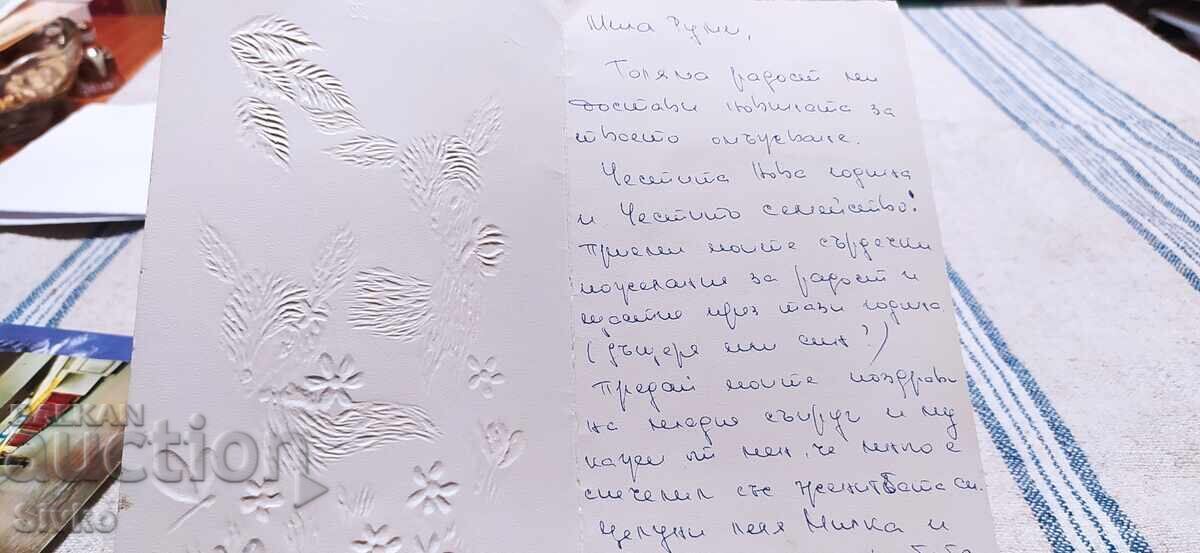 Мила Руми,
Голяма радост ми
достави новината за
твоето омъжване.
Честита Нова година
и Честито семейство!
Приеми моите сърдечни
пожелания за радост и
щастие през тази година
(дъщеря или син?)
Предай моите поздрави
на младия съпруг и му
кажи от мен, че много е
спечелил със женитбата си.
Целуни леля Милка и
BALKAN
auction
Sivko